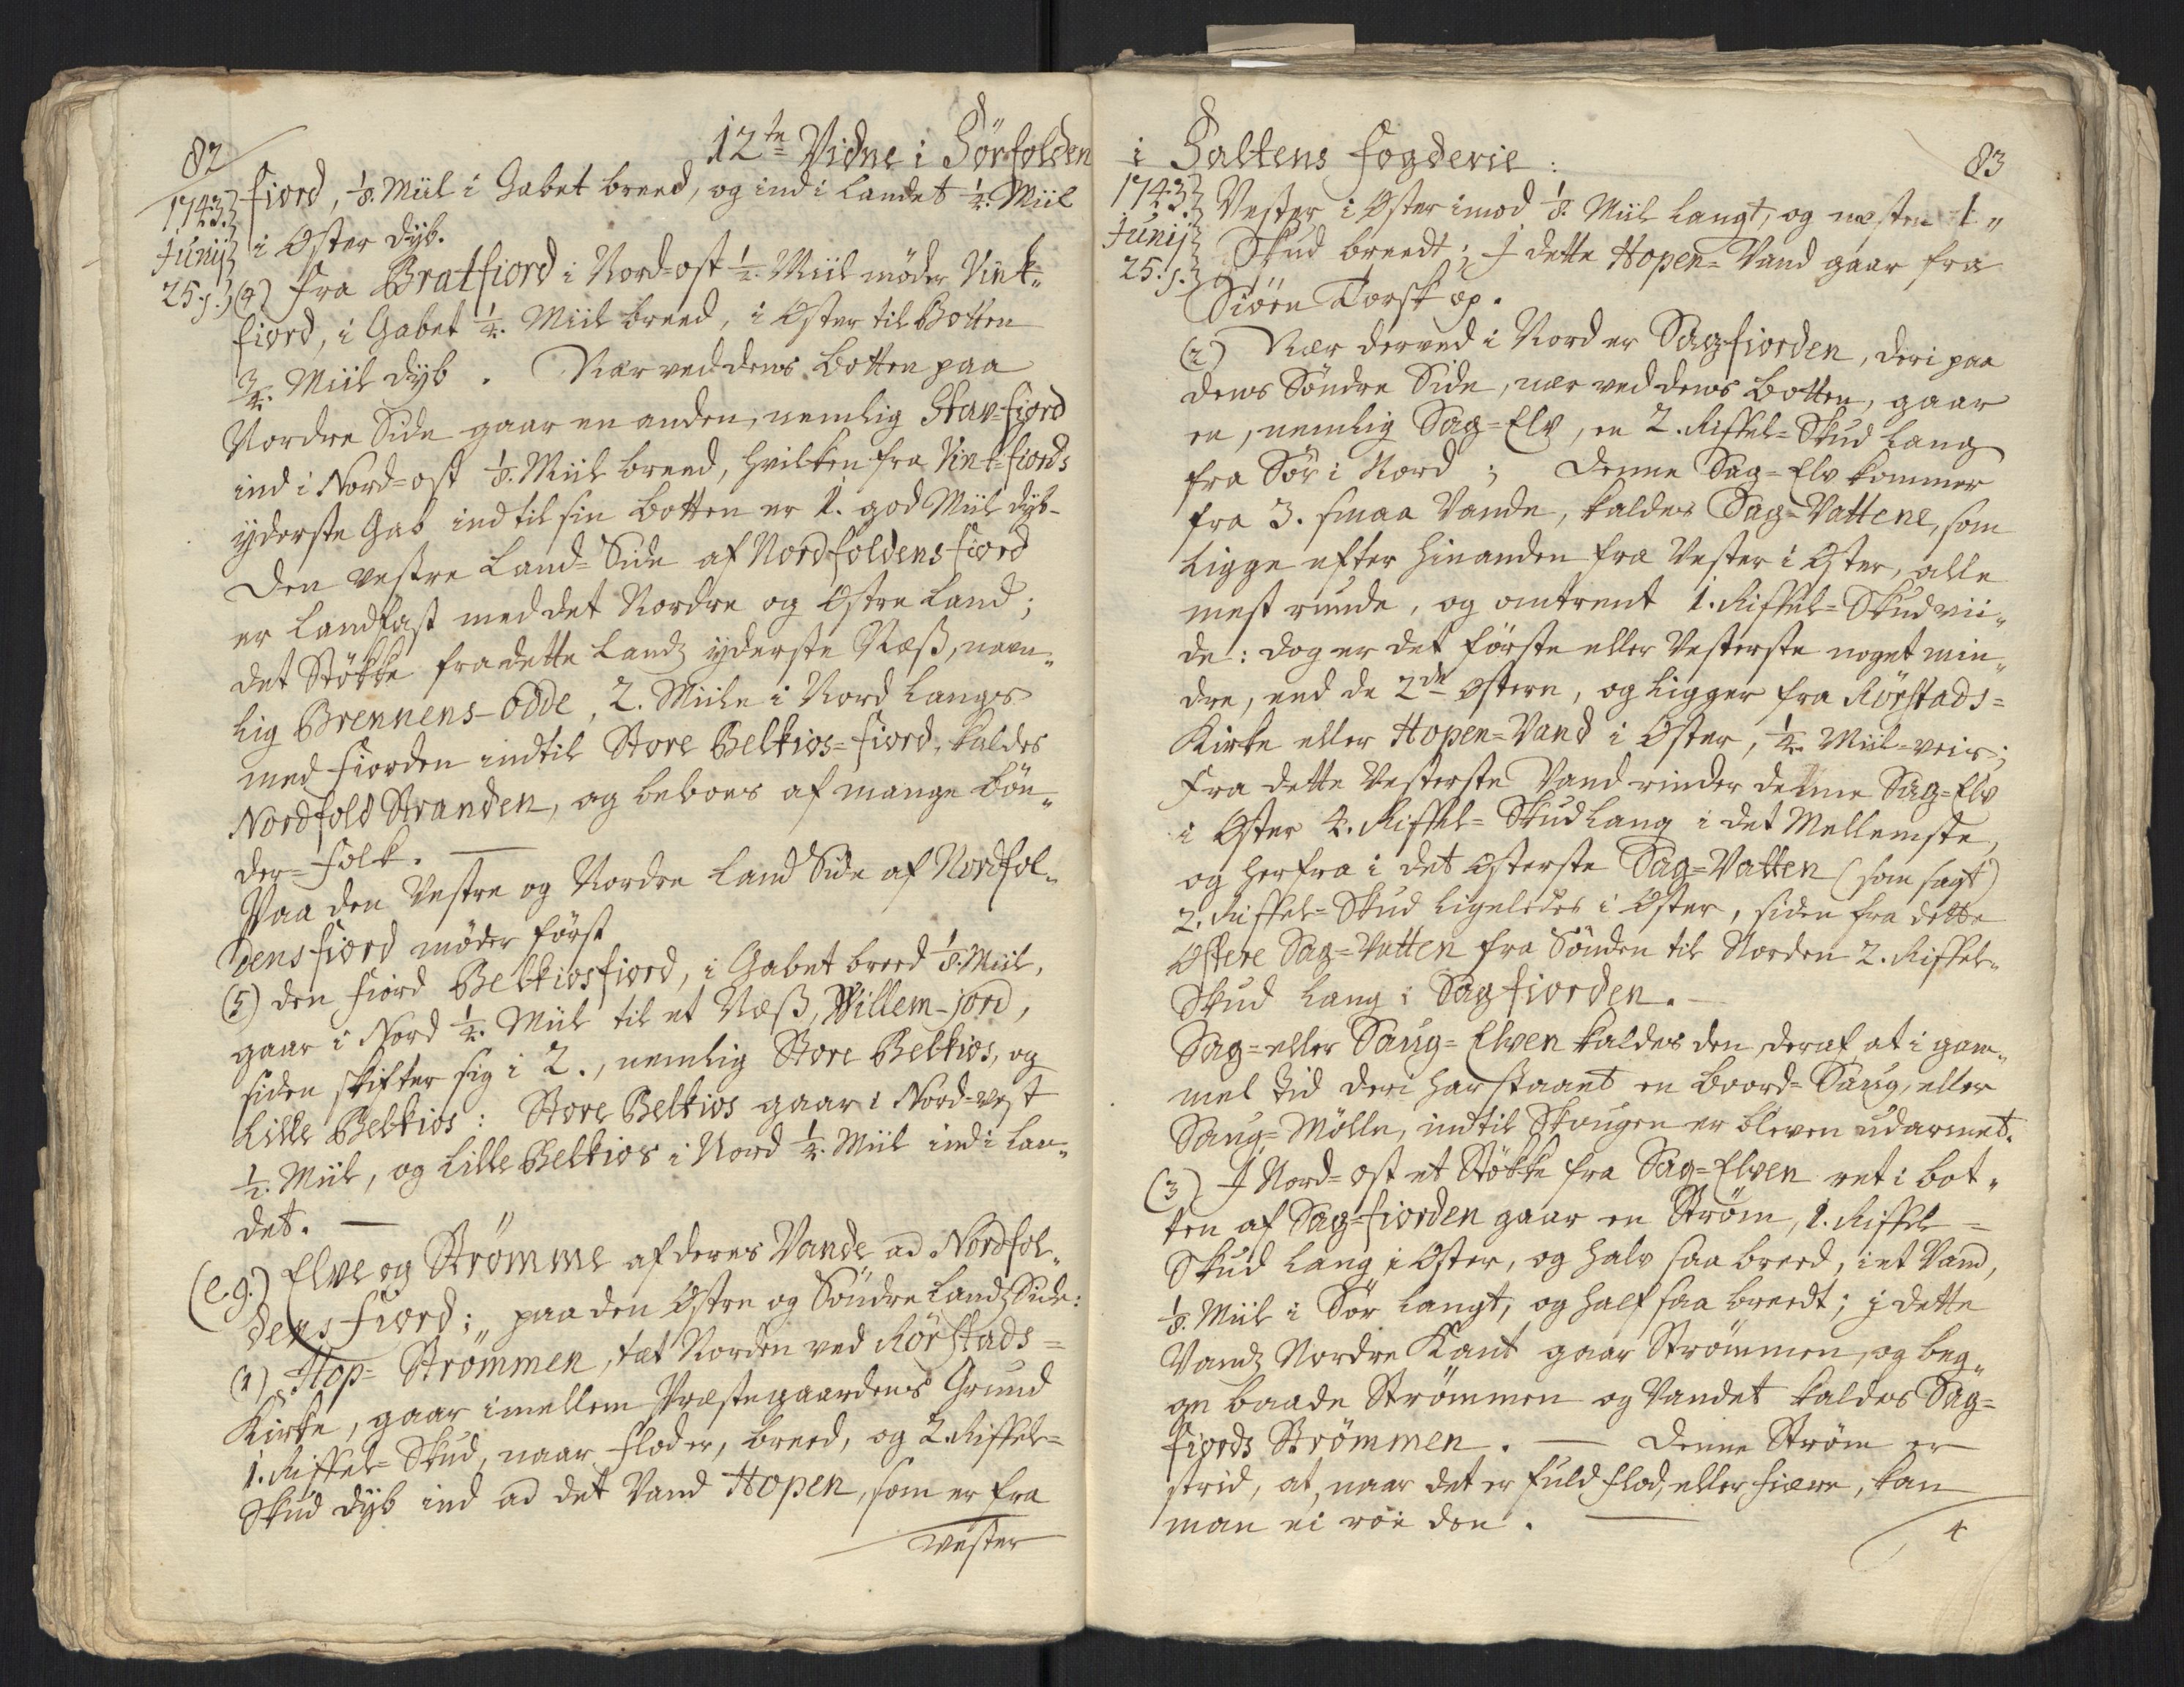 82
12te Vidne i Sörfolden
1743.
Junij
25. s.
fiord, 1/8. Miil i Gabet breed, og ind i Landet 1/4. Miil
i Öster dyb.
(4) Fra Bratfiord i Nord-ost 1/2. Miil möder Vink-
fiord, i Gabet 1/4. Miil breed, i Öster til Botten
3/4. Miil dyb. Nær ved dens Botten paa
Nordre Side gaar en anden, nemlig Stav-fiord
ind i Nord-ost 1/8. Miil breed, hvilken fra Vink-fiords
yderste Gab ind til sin Botten er 1. god Miil dyb.
Den vestre Land-Side af Nordfoldens fiord
er Landfast med det Nordre og Östre Land;
det Stökke fra dette Landz yderste Næss, nem-
lig Brennens-Odde, 2. Miile i Nord langs
med Fiorden indtil Store Belkios-Fiord, kaldes
Nordfold Stranden, og beboes af mange Bön-
der-Folk.
Paa den Vestre og Nordre Land Side af Nordfol-
dens fiord möder först
(5) den fiord Belkiosfiord, i Gabet breed 1/8. Miil,
gaar i Nord 1/4. Miil til et Næss, Willem-jord,
siden skifter sig i 2., nemlig Store Belkios, og
Lille Belkios: Store Belkios gaar i Nord-vest
1/2. Miil, og Lille Belkios i Nord 1/4. Miil ind i Lan-
det.
(e.g.) Elve og Strömme af deres Vande ad Nordfol-
dens Fiord; paa den Östre og Söndre Landz Side:
(1) Hop-Strömmen, tæt Norden ved Rörstads-
Kirke, gaar imellem Præstegaardens Grund
1. Riffel-Skud, naar Flod er, breed, og 2. Riffel-
Skud dyb ind ad det Vand Hopen, som er fra
Vester
i Saltens Fogderie:
83
1743.
Junij
25. s.
Vester i Öster imod 1/8. Miil langt, og næsten 1.
Skud breedt; I dette Hopen-Vand gaar fra
Siöen Torsk op.
(2) Nær derved i Nord er Sagfiorden, deri paa
dens Söndre Side, nær ved dens Botten, gaar
en, nemlig Sag-Elv, en 2. Riffel-Skud lang
fra Sör i Nord; Denne Sag-Elv kommer
fra 3. smaa Vande, kaldes Sag-Vattene, som
ligge efter hinanden fra Vester i Öster, alle
mest runde, og omtrent 1. Riffel-Skud vii-
de: dog er det förste eller Vesterste noget min-
dre, end de 2de Östern, og ligger fra Rörstads-
Kirke eller Hopen-Vand i Öster, 1/4. Miil-veis;
Fra dette Vesterste Vand rinder denne Sag-Elv
i Öster 4. Riffel-Skud lang i det Mellemste,
og herfra i det Österste Sag-Vatten (som sagt)
2. Riffel-Skud ligeledes i Öster, siden fra dette
Östere Sag-Vatten fra Sönden til Norden 2. Riffel-
Skud lang i Sagfiorden.
Sag- eller Saug-Elven kaldes den, deraf, at i gam-
mel Tid deri har staaet en Boord-Saug, eller
Saug-Mölle, indtil Skougen er bleven udarmet.
(3) I Nord-ost et Stökke fra Sag-Elven ret i Bot-
ten af Sag-fiorden gaar en Ström, 1. Riffel-
Skud lang i Öster, og halv saa breed, i et Vand,
1/8. Miil i Sör langt, og half saa breedt; j dette
Vandz Nordre Kant gaar Strömmen, og beg-
ge baade Strömmen og Vandet kaldes Sag-
fiords Strömmen. Denne Ström er
strid, at, naar det er fuld Flod, eller Fiære, kan
man ei roe den.
4